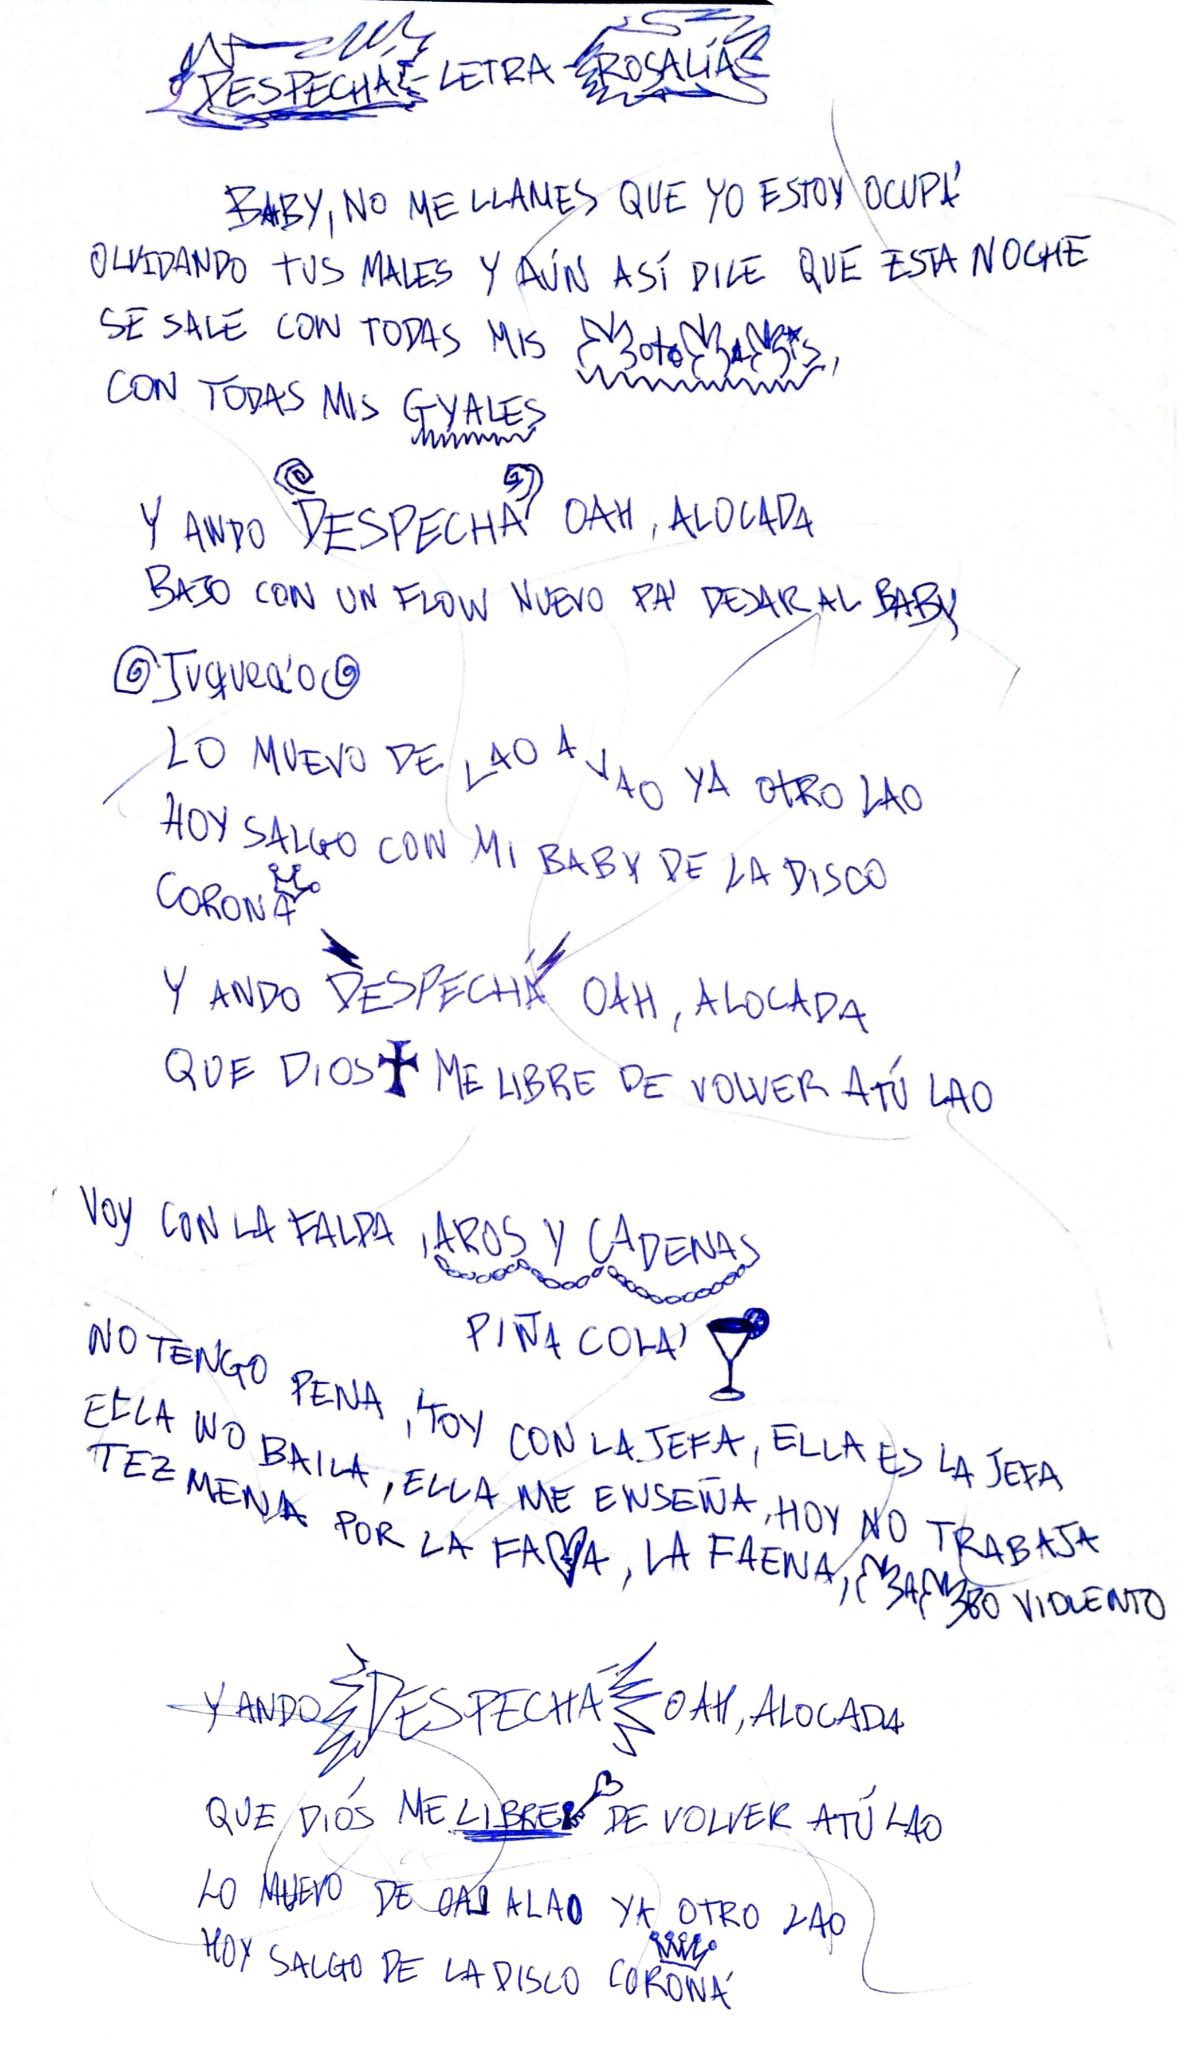 DESPECHÁ - LETRA - ROSALÍA
BABY, NO ME LLAMES QUE YO ESTOY OCUPÁ
OLVIDANDO TUS MALES Y AÚN ASÍ DILE QUE ESTA NOCHE
SE SALE CON TODAS MIS MotoMAMIS,
CON TODAS MIS GYALES
Y ANDO DESPECHÁ OAH, ALOCADA
BAJO CON UN FLOW NUEVO PA' DEJAR AL BABY
Juquea'o
LO MUEVO DE LAO A LAO YA OTRO LAO
HOY SALGO CON MI BABY DE LA DISCO
CORONÁ
Y ANDO DESPECHÁ OAH, ALOCADA
QUE DIOS ME LIBRE DE VOLVER A TÚ LAO
VOY CON LA FALDA, AROS Y CADENAS
PIÑA COLA'
NO TENGO PENA, 'TOY CON LA JEFA, ELLA ES LA JEFA
ELLA NO BAILA, ELLA ME ENSEÑA, HOY NO TRABAJA
TEZ MENA POR LA FAMA, LA FAENA, MAMBO VIOLENTO
Y ANDO DESPECHÁ OAH, ALOCADA
QUE DIÓS ME LIBRE DE VOLVER A TÚ LAO
LO MUEVO DE OAL A LAO YA OTRO LAO
HOY SALGO DE LA DISCO CORONÁ